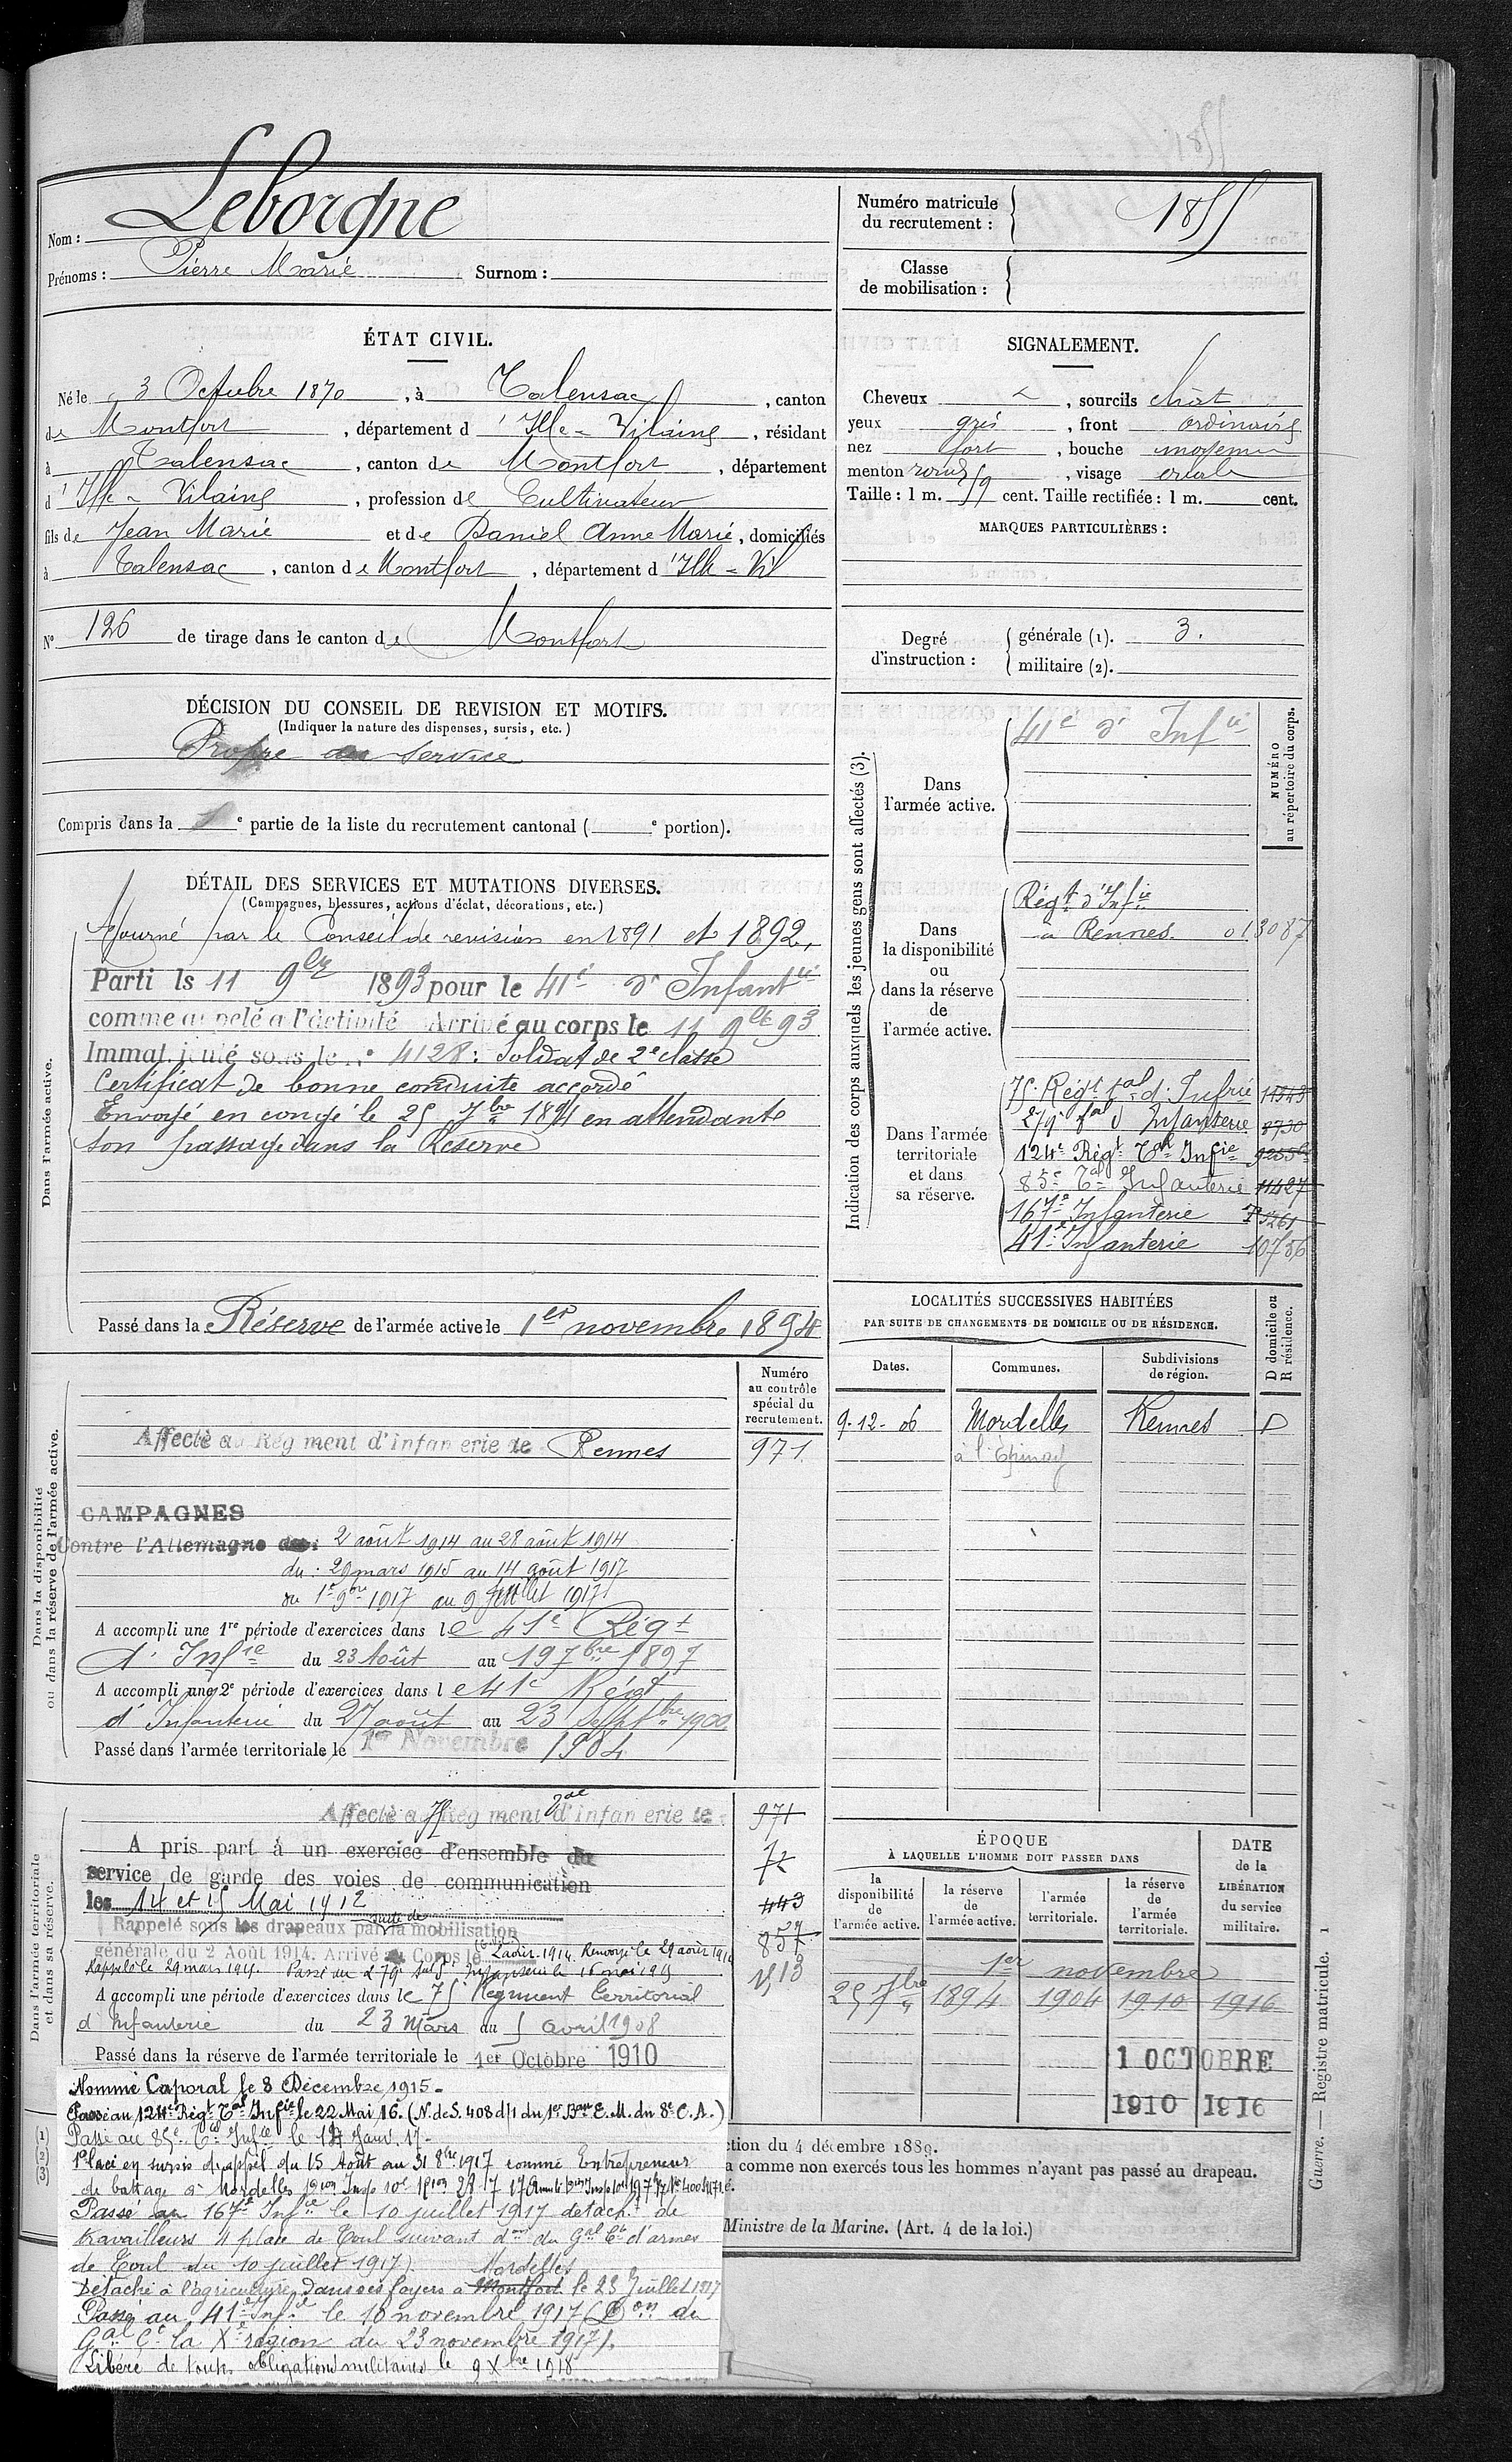 Nom : Leborgne
Prénoms : Pierre Marie Surnom :
Numéro matricule du recrutement : 1855
Classe de mobilisation :
ÉTAT CIVIL.
Né le 3 Octobre 1870, à Talensac, canton
de Montfort, département d'Ille-Vilaine, résidant
à Talensac, canton de Montfort, département
d'Ille-Vilaine, profession de Cultivateur
fils de Jean Marie et de Daniel Anne Marie, domiciliés
à Talensac, canton de Montfort, département d'Ille-Vil
N° 126 de tirage dans le canton de Montfort
SIGNALEMENT.
Cheveux, sourcils chât
yeux gris, front ordinaire
nez fort, bouche moyenne
menton rond, visage ovale
Taille : 1 m. 59 cent. Taille rectifiée : 1 m. cent.
MARQUES PARTICULIÈRES :
Degré d'instruction : générale (1). 3.
militaire (2).
DÉCISION DU CONSEIL DE REVISION ET MOTIFS.
(Indiquer la nature des dispenses, sursis, etc.)
Propre au service
Compris dans la 1e partie de la liste du recrutement cantonal ( e portion).
DÉTAIL DES SERVICES ET MUTATIONS DIVERSES.
(Campagnes, blessures, actions d'éclat, décorations, etc.)
Dans l'armée active.
Ajourné par le Conseil de revision en 1891 et 1892.
Parti le 11 9bre 1893 pour le 41e d'Infantie
comme appelé à l'activité Arrivé au corps le 11 9bre 93
Immatriculé sous le n° 4128 : Soldat de 2e classe
Certificat de bonne conduite accordé
Envoyé en congé le 25 7bre 1894 en attendant
son passage dans la Réserve
Passé dans la Réserve de l'armée active le 1er novembre 1894
Indication des corps auxquels les jeunes gens sont affectés (3).
NUMÉRO au répertoire du corps.
Dans l'armée active.
41e d'Infie
Dans la disponibilité ou dans la réserve de l'armée active.
Régt d'Infie
à Rennes. 013087
Dans l'armée territoriale et dans sa réserve.
75e Régt tal d'Infrie 11343
279e tal d'Infanterie 8730
124e Régt Tal Infie
85e Tal Infanterie 11427
167e Infanterie
41e Infanterie 10756
LOCALITÉS SUCCESSIVES HABITÉES
PAR SUITE DE CHANGEMENTS DE DOMICILE OU DE RÉSIDENCE.
Dates. Communes. Subdivisions de région. D domicile ou R résidence.
9-12-06 Mordelles Rennes D
à l'Epinay
Dans la disponibilité ou dans la réserve de l'armée active.
Numéro au contrôle spécial du recrutement.
Affecté au Régiment d'infanterie de Rennes 971
CAMPAGNES
Contre l'Allemagne du : 2 août 1914 au 28 août 1914
du : 29 mars 1915 au 14 août 1917
du 1er 9bre 1917 au 9 Juillet 1917
A accompli une 1re période d'exercices dans le 41e Régt
d'Infie du 23 Août au 19 7bre 1897
A accompli une 2e période d'exercices dans le 41e Régt
d'Infanterie du 27 août au 23 Septbre 1900
Passé dans l'armée territoriale le 1er Novembre 1904
Dans l'armée territoriale et dans sa réserve.
Affecté au 75 Régiment tal d'infanterie de 971
A pris part à un exercice d'ensemble du
service de garde des voies de communication
les 14 et 15 Mai 1912 443
Rappelé sous les drapeaux par suite de la mobilisation
générale du 2 Août 1914. Arrivé au Corps le 2 août 1914. Renvoyé le 29 août 1914 857
Rappelé le 29 mars 1915. Passé au 279e tal d'Infanterie le 16 mai 1915 1513
A accompli une période d'exercices dans le 75 Régiment territorial
d'Infanterie du 23 Mars au 5 avril 1908
Passé dans la réserve de l'armée territoriale le 1er Octobre 1910
ÉPOQUE
À LAQUELLE L'HOMME DOIT PASSER DANS
la disponibilité de l'armée active. la réserve de l'armée active. l'armée territoriale. la réserve de l'armée territoriale.
DATE de la LIBÉRATION du service militaire.
1er novembre
25 7bre 1894 1904 1910 1916
1 OCTOBRE
1910 1916
Nommé Caporal le 8 Décembre 1915.
Passé au 124e Régt Tal Infie le 22 Mai 16. (N. de S. 408 d/1 du 1er Bau E. M. du 8e C. A.)
Passé au 85e Tal Infie le 14 Janv. 17.
Placé en sursis d'appel du 15 Août au 31 8bre 1917 comme Entrepreneur
de battage à Mordelles
Passé au 167e Infie le 10 juillet 1917 détacht de
travailleurs 4 place de Toul suivant don du Gal Ct d'armes
de Toul du 10 juillet 1917)
Détaché à l'agriculture dans ses foyers à Montfort Mordelles le 23 Juillet 1917
Passé au 41e Infie le 10 novembre 1917 (Don du
Gal Ct la Xe région du 23 novembre 1917).
Libéré de toutes obligations militaires le 9 Xbre 1918
ction du 4 décembre 1889.
a comme non exercés tous les hommes n'ayant pas passé au drapeau.
Ministre de la Marine. (Art. 4 de la loi.)
Guerre. — Registre matricule. 1